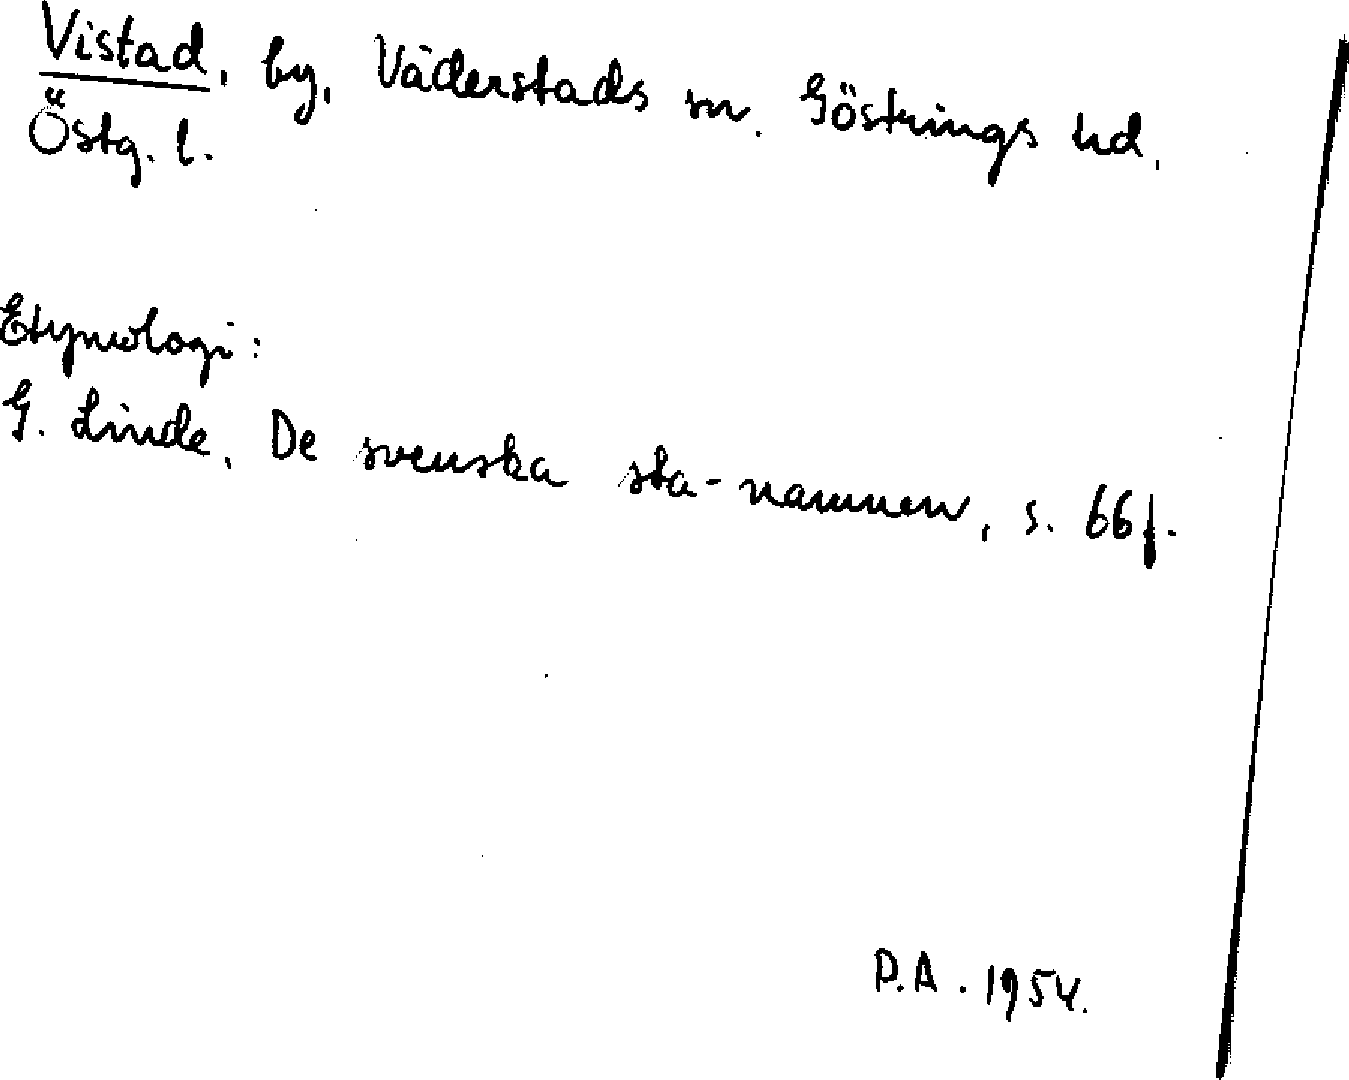 Vistad, by, Väderstads sn. Göstrings hd.
Östg. l.
Etymologi:
G. Linde, De svenska sta-namnen, s. 66 f.
D.A. 1954.